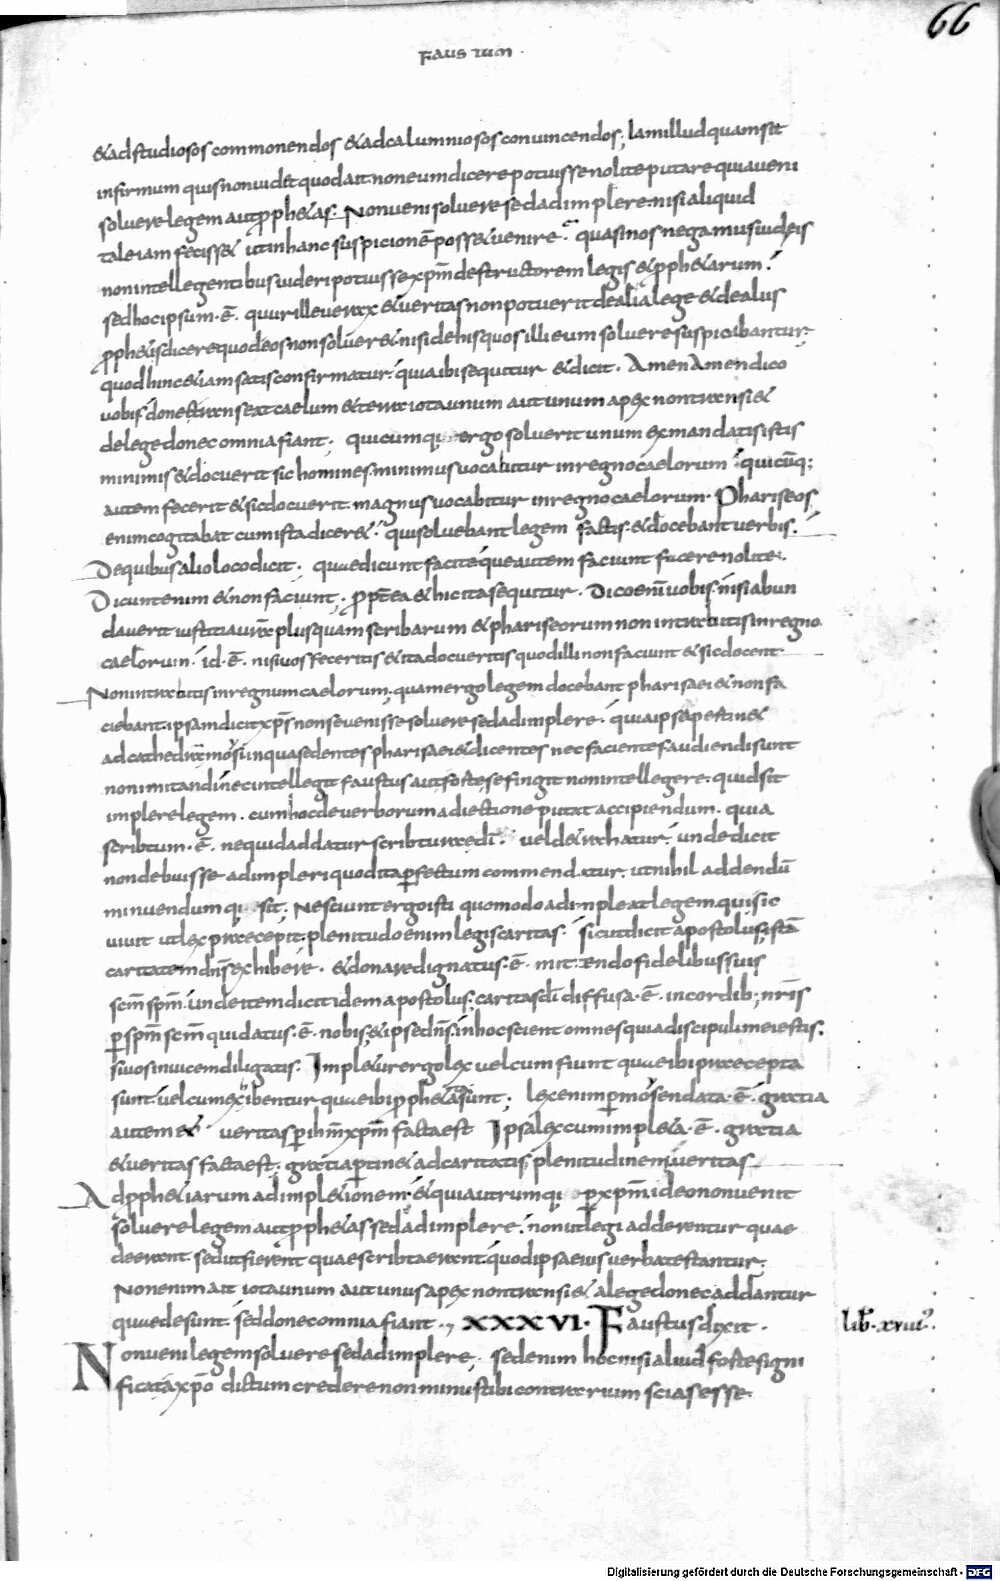 66
FAUSTUM
& ad studiosos commonendos & ad calumniosos conuincendos; Iam illud quam sit
infirmum quis non uidet quod ait non eum dicere potuisse nolite putare quia ueni
soluere legem aut pphetas. Non ueni soluere sed ad implere. nisi aliquid
tale iam fecisset ut in hanc suspicionē posset uenire. quasi nos negamus iudeis
non intellegentibus uideri potuisse xpm̄ destructorem legis & pphetarum.
sed hoc ipsum. ē. qur ille uerax & ueritas non potuerit de alia lege & de aliis
pphetis dicere quod eos non solueret nisi de his quos illi eum soluere suspicabantur
quod hinc etiam satis confirmatur. quia ibi sequitur & dicit. Amen Amen dico
uobis donec transeat caelum & terra iota unum aut unum apex non transiet
de lege donec omnia fiant. quicumq; ergo soluerit unum ex mandatis istis
minimis & docuerit sic homines. minimus uocabitur in regno caelorum. quicūq;
autem fecerit & sic docuerit. magnus uocabitur in regno caelorum. Phariseos
enim cogitabat cum ista diceret. qui soluebant legem factis. & docebant uerbis.
De quibus alio loco dicit. quae dicunt facite quae autem faciunt facere nolite.
Dicunt enim & non faciunt. ppt̄ea & hic ita sequitur. Dico enī uobis. nisi abun
dauerit iustitia ur̄a plus quam scribarum & phariseorum non intrabitis in regno
caelorum. id. ē. nisi uos feceritis & ita docueritis quod illi non faciunt & sic docent
Non intrabitis in regnum caelorum. quam ergo legem docebant pharisaei & non fa
ciebant. ipsam dicit xp̄s non se uenisse soluere sed ad implere. quia ipsa pertinet
ad cathedram mosi in qua sedentes pharisaei & dicentes nec facientes audiendi sunt
non imitandi nec intellegit faustus aut forte se fingit non intellegere. quid sit
implere legem. cum hoc de uerborum adiectione putat accipiendum. quia
scribtum. ē. ne quid addatur scribturae dī. uel detrahatur. unde dicit
non debuisse adimpleri quod ita p̄fectum commendatur. ut nihil addendū
minuendum q; sit; Nesciunt ergo isti quomodo adimpleat legem. qui sic
uiuit ut lex praecepit. plenitudo enim legis caritas. sicut dicit apostolus. istā
caritatem dn̄s exhibere. & donare dignatus. ē. mittendo fidelibus suis
scm̄ spm̄. unde item dicit idem apostolus. caritas dī diffusa. ē. in cordib; nr̄is
p̄ spm̄ scm̄ qui datus. ē. nobis. & ipse dn̄s. in hoc scient omnes quia discipuli mei estis.
si uos inuicem diligatis. Impletur ergo lex uel cum fiunt quae ibi praecepta
sunt. uel cum exhibentur quae ibi pphetata sunt; lex enim p̄ mosen data. ē. gratia
autem et ueritas p̄ ihm̄ xpm̄ facta est Ipsa lex cum impleta. ē. gratia
& ueritas facta est. gratia p̄tinet ad caritatis plenitudinem. ueritas
Ad pphetiarum ad impletionem. & quia utrumq; p̄ xpm̄. ideo non uenit
soluere legem aut pphetas sed ad implere. non ut legi adderentur quae
deerant. sed ut fierent quae scribta erant. quod ipsa eius uerba testantur.
Non enim ait iota unum aut unus apex non transiet a lege donec addantur
quae desunt. sed donec omnia fiant. XXXVI. Faustus dixit.
lib. xviii.
Non ueni legem soluere sed ad implere. sed enim hoc nisi aliud forte signi
ficata xpo dictum credere non minus tibi contrarium scias esse.
Digitalisierung gefördert durch die Deutsche Forschungsgemeinschaft - DFG